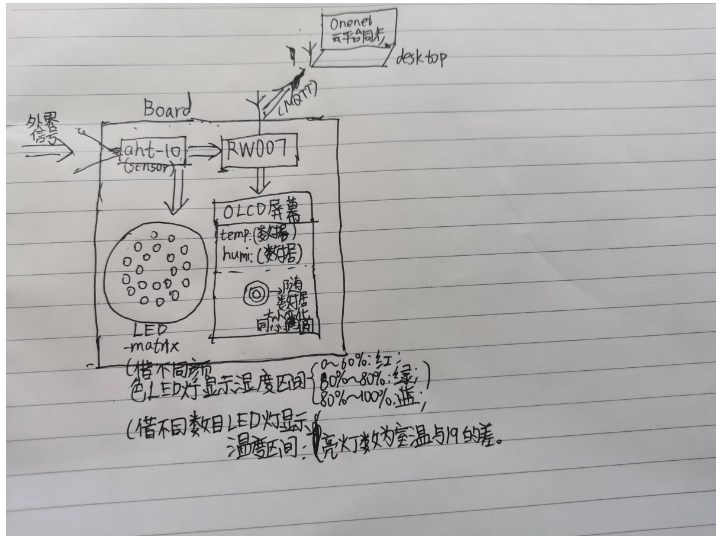 Onenet
云平台同步
desktop
(MQTT)
Board
外界
信号
aht-10
(sensor)
RW007
OLCD屏幕
temp:(数据)
humi:(数据)
→随
数据
大小变化
同心圆
LED
-matrix
(借不同颜
色LED灯显示湿度区间{0~60%:红;
60%~80%:绿;)
80%~100%:蓝;
(借不同数目LED灯显示
温度区间:亮灯数为室温与19的差。